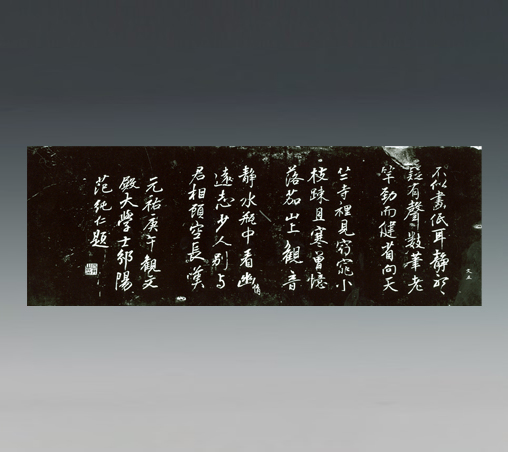 不似畫低耳靜聽
疑有聲數華老
筆勁而健省向天
竺寺裡見窈窕小
枝疎且寒曾憶
落茄山上觀音
靜水瓶中看幽
遠志少人別与
君相顧空長嘆
元祐庚午觀文
殿大學士邻陽
范純仁題